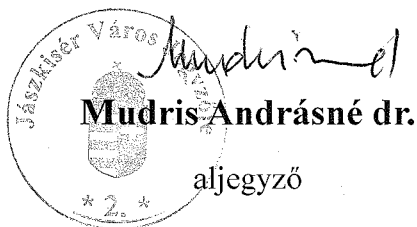 Jászkisér Város Jegyzője
Mudris Andrásné dr.
aljegyző
* 2. *